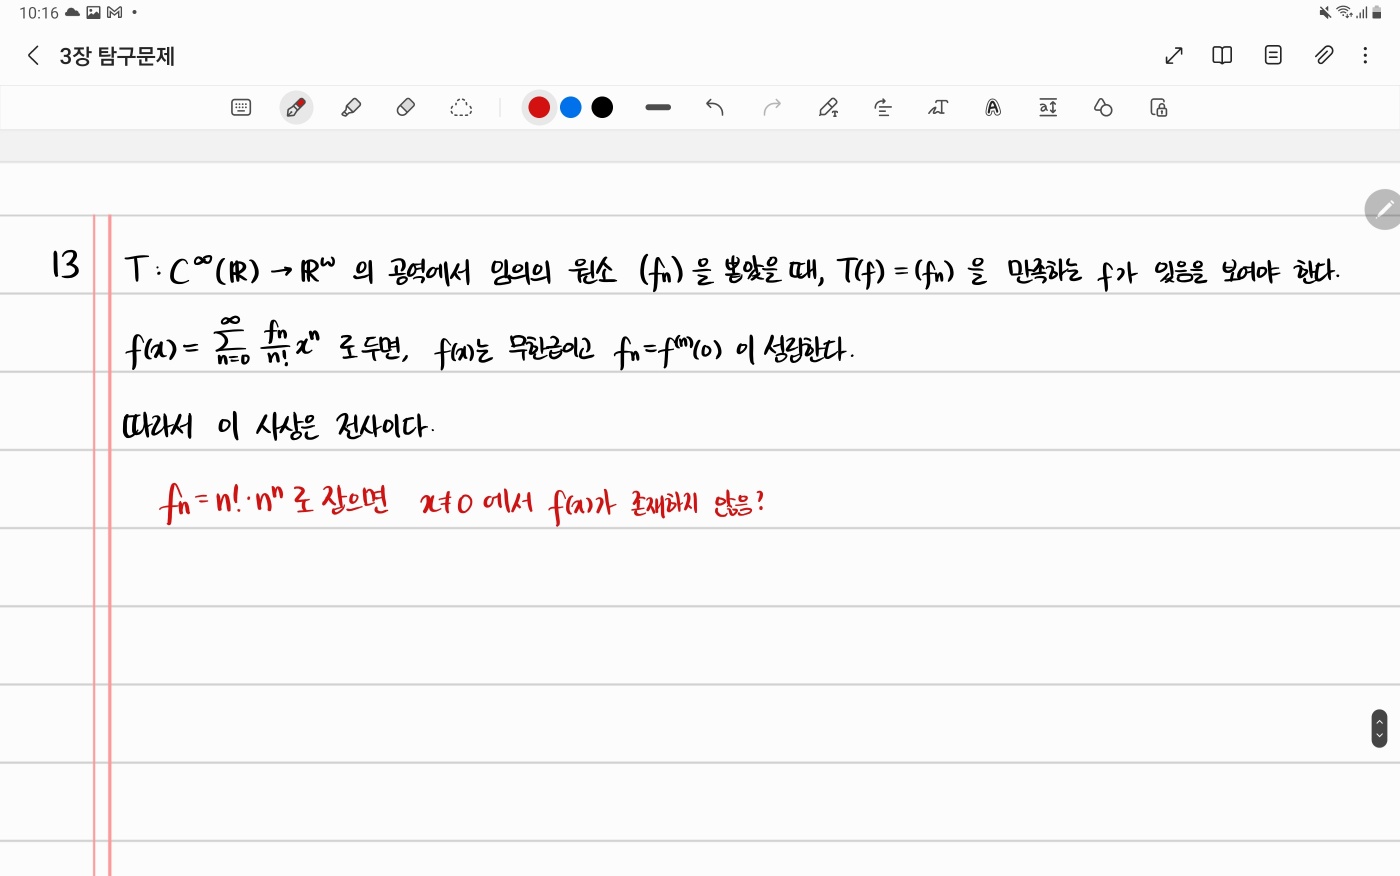 10:16
3장 탐구문제
13 T : C^∞(ℝ) → ℝ^ω 의 공역에서 임의의 원소 (fn)을 뽑았을 때, T(f) = (fn) 을 만족하는 f가 있음을 보여야 한다.
f(x) = ∑_{n=0}^{∞} fn/n! x^n 로 두면, f(x)는 무한급이고 fn = f^(n)(0) 이 성립한다.
따라서 이 사상은 전사이다.
fn = n! · n^n 로 잡으면 x≠0 에서 f(x)가 존재하지 않음?